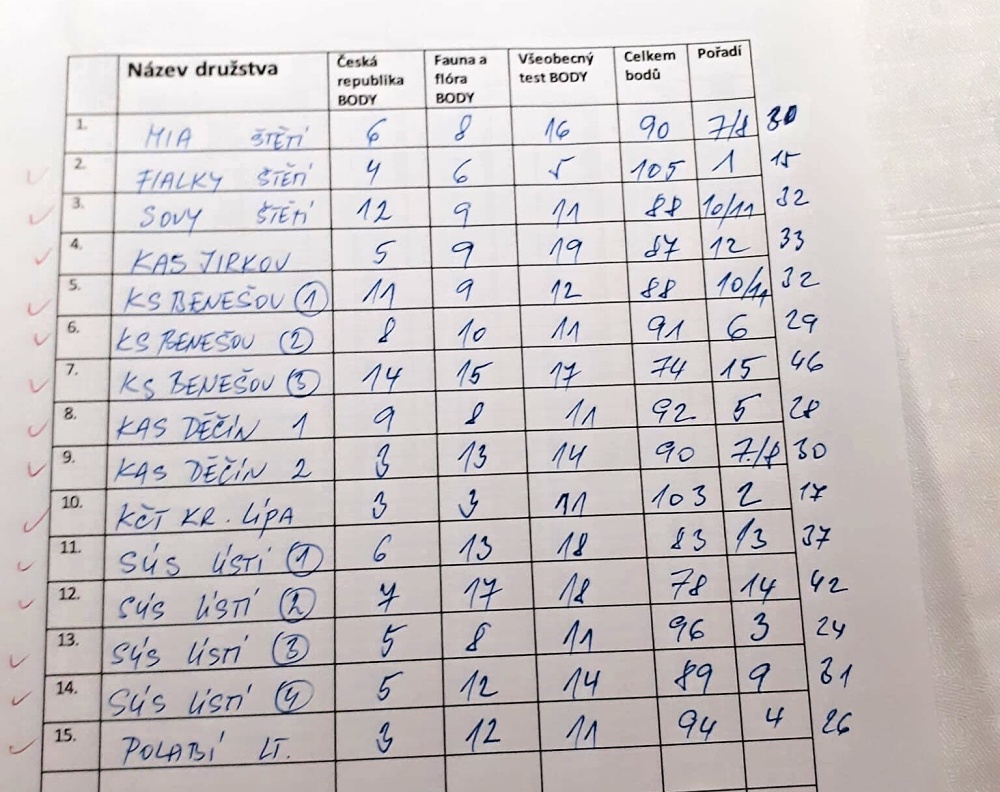 Název družstva Česká republika BODY Fauna a flóra BODY Všeobecný test BODY Celkem bodů Pořadí
1. MIA ŠTĚTÍ 6 8 16 90 7/8 30
2. FIALKY ŠTĚTÍ 4 6 5 105 1 15
3. SOVY ŠTĚTÍ 12 9 11 88 10/11 32
4. KAS JIRKOV 5 9 19 87 12 33
5. KS BENEŠOV 1 11 9 12 88 10/11 32
6. KS BENEŠOV 2 8 10 11 91 6 29
7. KS BENEŠOV 3 14 15 17 74 15 46
8. KAS DĚČÍN 1 9 8 11 92 5 28
9. KAS DĚČÍN 2 3 13 14 90 7/8 30
10. KČT KR. LÍPA 3 3 11 103 2 17
11. SÚS ÚSTÍ 1 6 13 18 83 13 37
12. SÚS ÚSTÍ 2 7 17 18 78 14 42
13. SÚS ÚSTÍ 3 5 8 11 96 3 24
14. SÚS ÚSTÍ 4 5 12 14 89 9 31
15. POLABÍ LT. 3 12 11 94 4 26